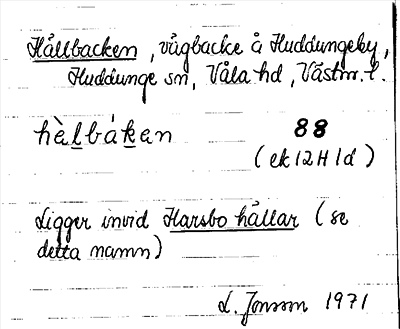 Hållbacken, vägbacke å Huddungeby,
Huddunge sn, Våla hd, Västm. l.
hὲl̲bák̲en 88
(ek 12 H 1d)
Ligger invid Harsbo hållar (se
detta namn)
L. Jonsson 1971